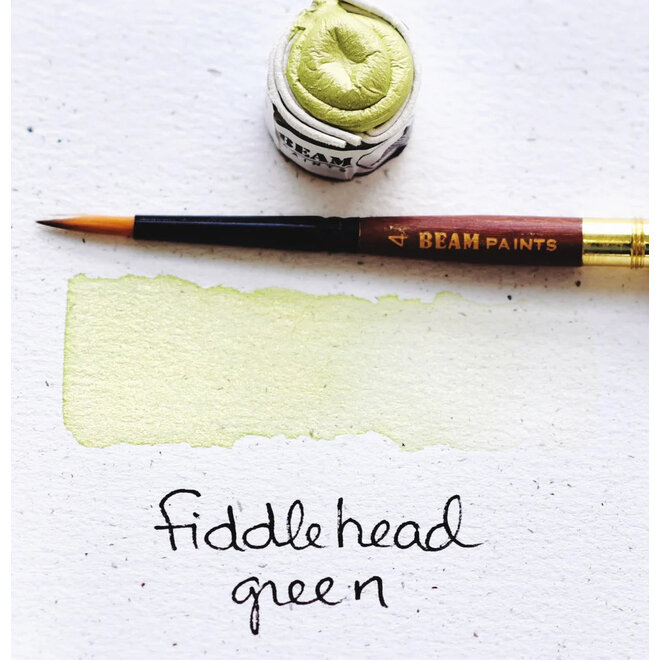 BEAM
PAINTS
4 BEAM PAINTS
fiddlehead
green